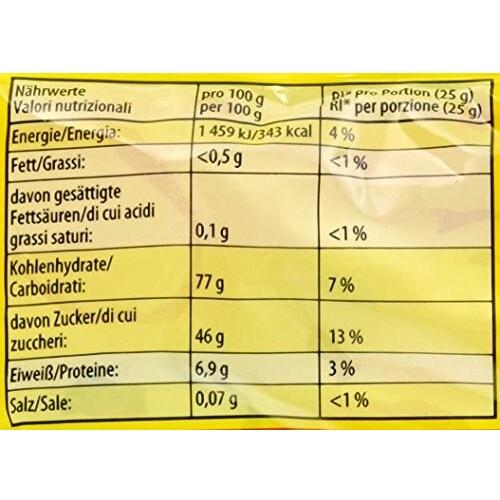 Nährwerte
Valori nutrizionali
pro 100 g
per 100 g
RI* pro Portion (25 g)
RI* per porzione (25 g)
Energie/Energia:
1 459 kJ/343 kcal
4 %
Fett/Grassi:
<0,5 g
<1 %
davon gesättigte
Fettsäuren/di cui acidi
grassi saturi:
0,1 g
<1 %
Kohlenhydrate/
Carboidrati:
77 g
7 %
davon Zucker/di cui
zuccheri:
46 g
13 %
Eiweiß/Proteine:
6,9 g
3 %
Salz/Sale:
0,07 g
<1 %